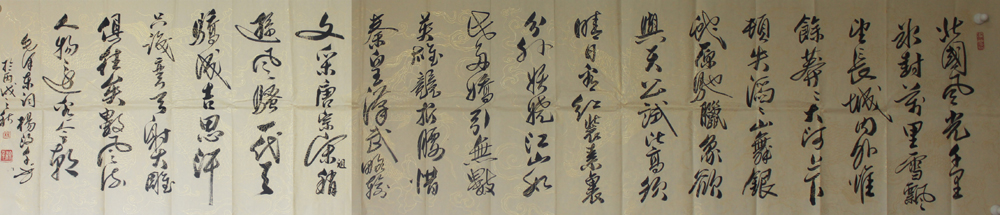 北國風光千里
冰封萬里雪飄
望長城內外惟
餘莽々大河上下
頓失滔々山舞銀
蛇原馳臘象欲
與天公試比高須
晴日看紅裝素裹
分外妖嬈江山如
此多嬌引無數
英雄競折腰惜
秦皇漢武略輸
文采唐宗宋祖稍
遜風騷一代天
驕成吉思汗
只識彎弓射大雕
俱往矣數風流
人物還看今朝
毛澤東詞 楊
於丙戌之秋